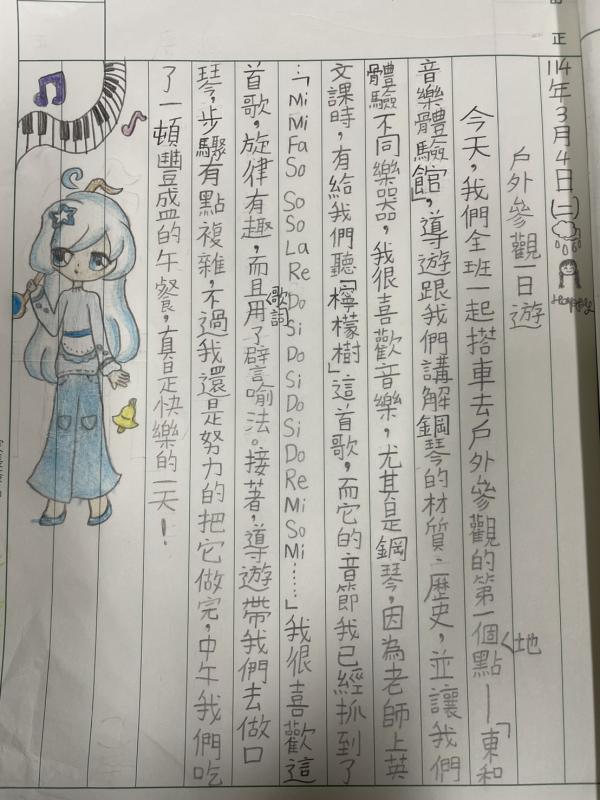 正
114年3月4日(二)
Happy
戶外參觀一日遊
今天，我們全班一起搭車去戶外參觀的第一個地點—「東和
音樂體驗館」，導遊跟我們講解鋼琴的材質、歷史，並讓我們
體驗不同樂器，我很喜歡音樂，尤其是鋼琴，因為老師上英
文課時，有給我們聽「檸檬樹」這首歌，而它的音節我已經抓到了
…「Mi Mi Fa So So So La Re Do Si Do Si Do Si Do Re Mi So Mi……」我很喜歡這
首歌，旋律有趣，而且歌詞用了譬喻法。接著，導遊帶我們去做口
琴，步驟有點複雜，不過我還是努力的把它做完，中午我們吃
了一頓豐盛的午餐，真是快樂的一天！